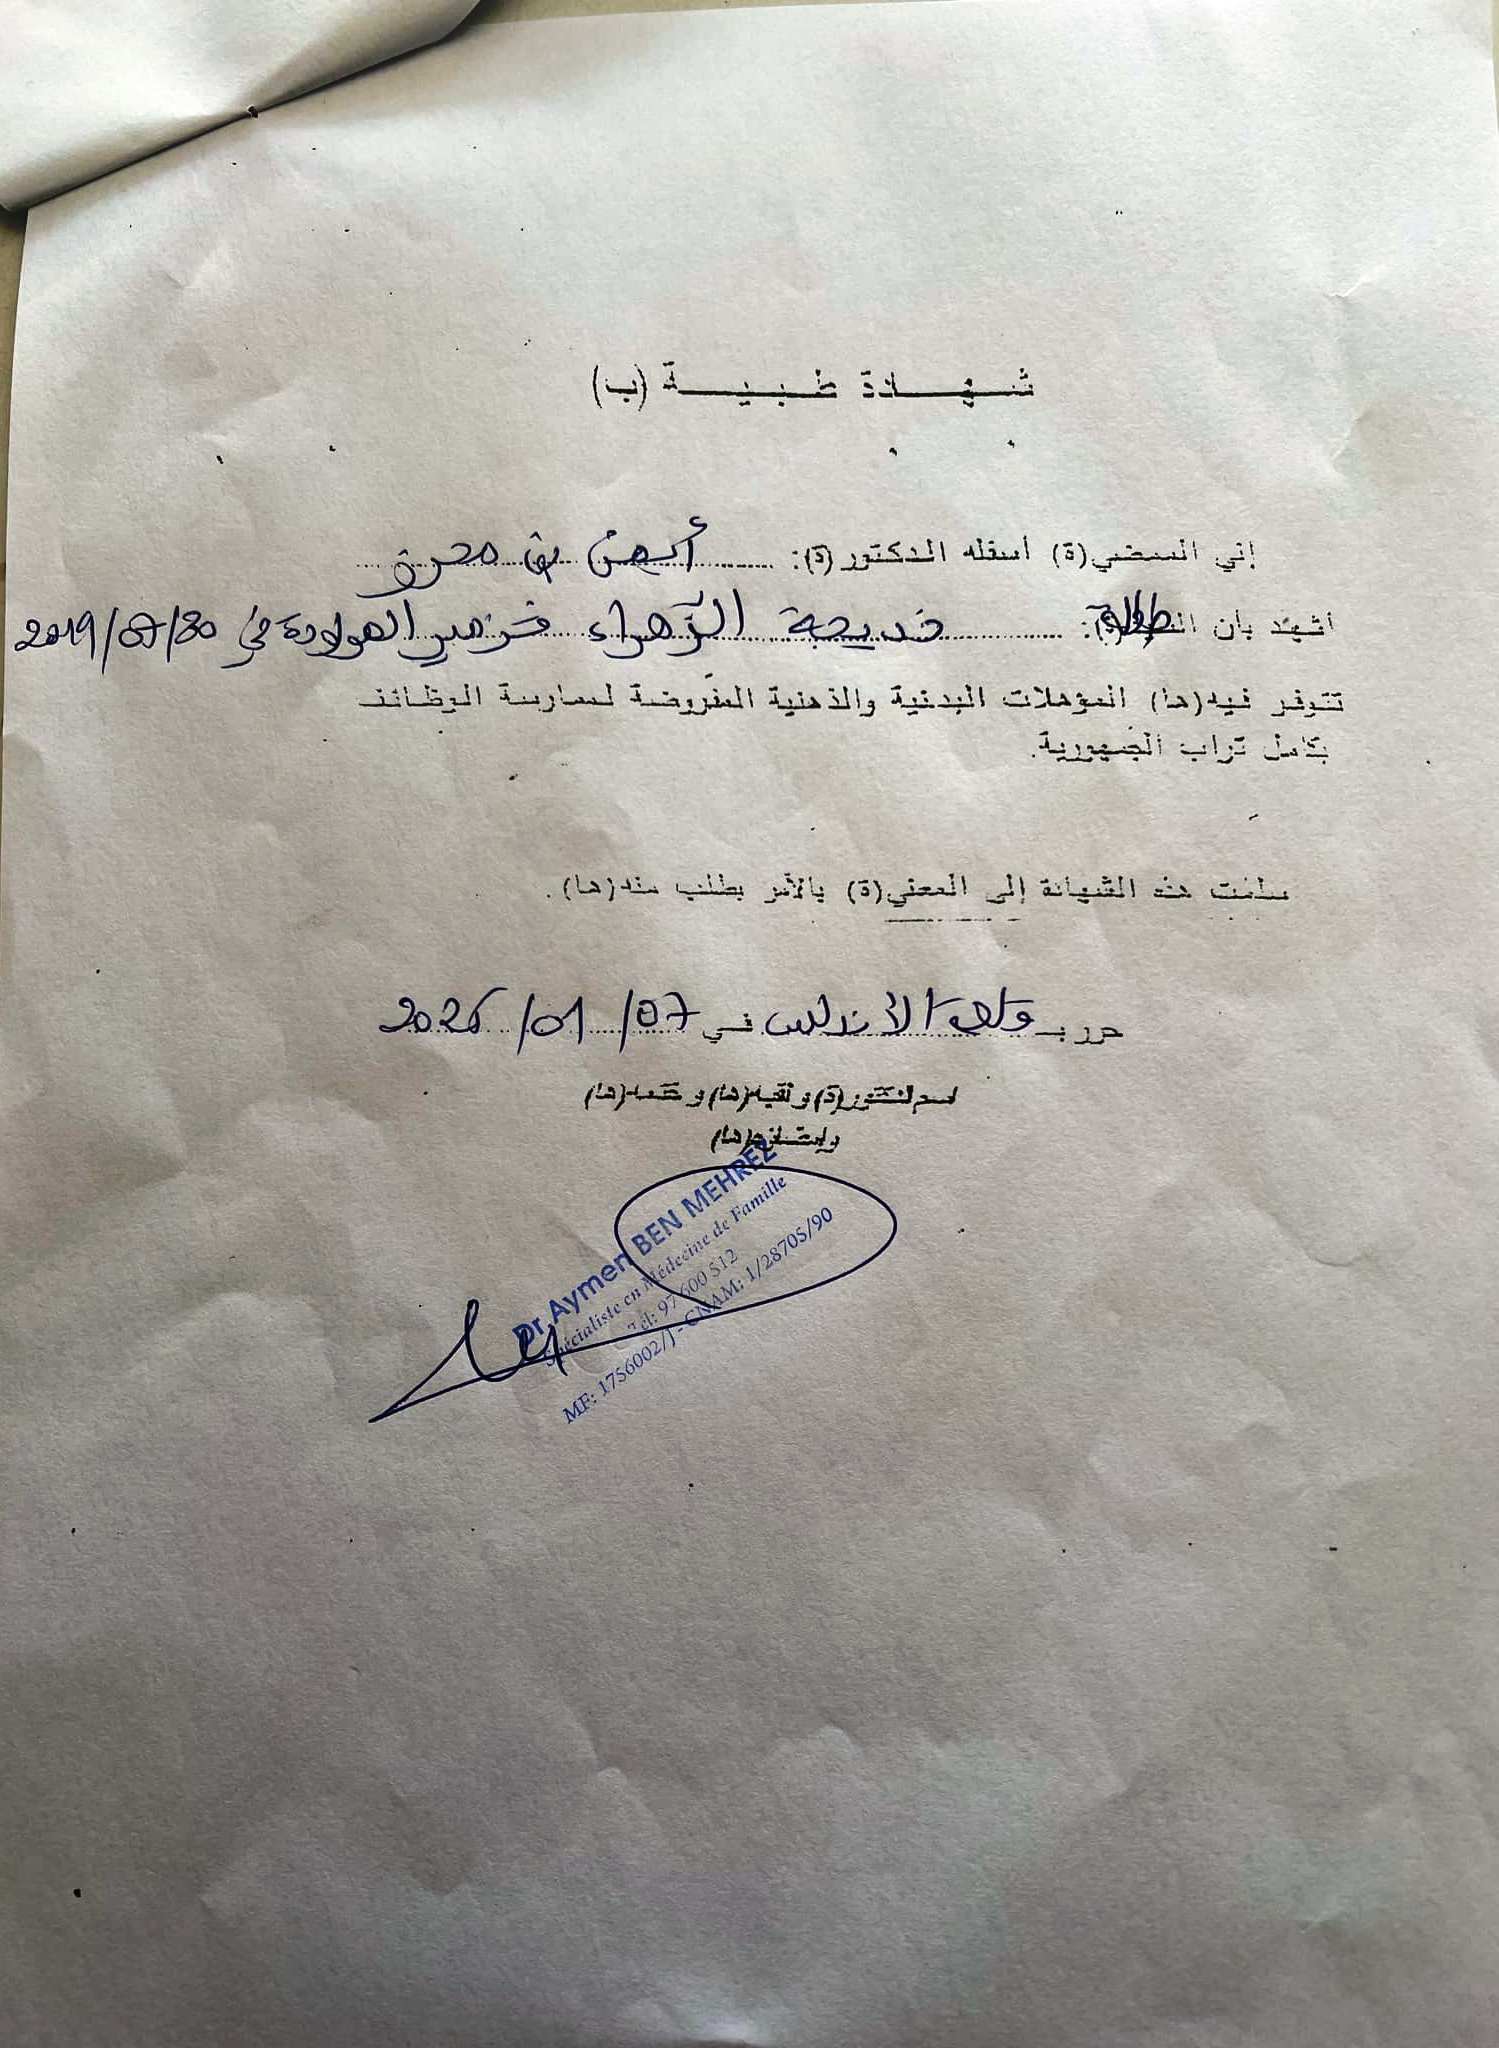 شهادة طبية (ب)
إني الممضي(ة) أسفله الدكتور(ة): أيمن بن محرز
أشهد بأن الطفلة: خديجة الزهراء المولودة في 2019/07/30
تتوفر فيه(ها) المؤهلات البدنية والذهنية المفروضة لممارسة الوظائف
بكامل تراب الجمهورية.
سلمت هذه الشهادة إلى المعني(ة) بالأمر بطلب منه(ها).
حرر بـ الأندلس في 2026/01/07
اسم الدكتور(ة) ولقبه(ها) وختمه(ها)
وإمضاؤه(ها)
Dr Aymen BEN MEHREZ
Spécialiste en Médecine de Famille
Tél: 97 600 512
MF: 1756002/J - CNAM: 1/28705/90